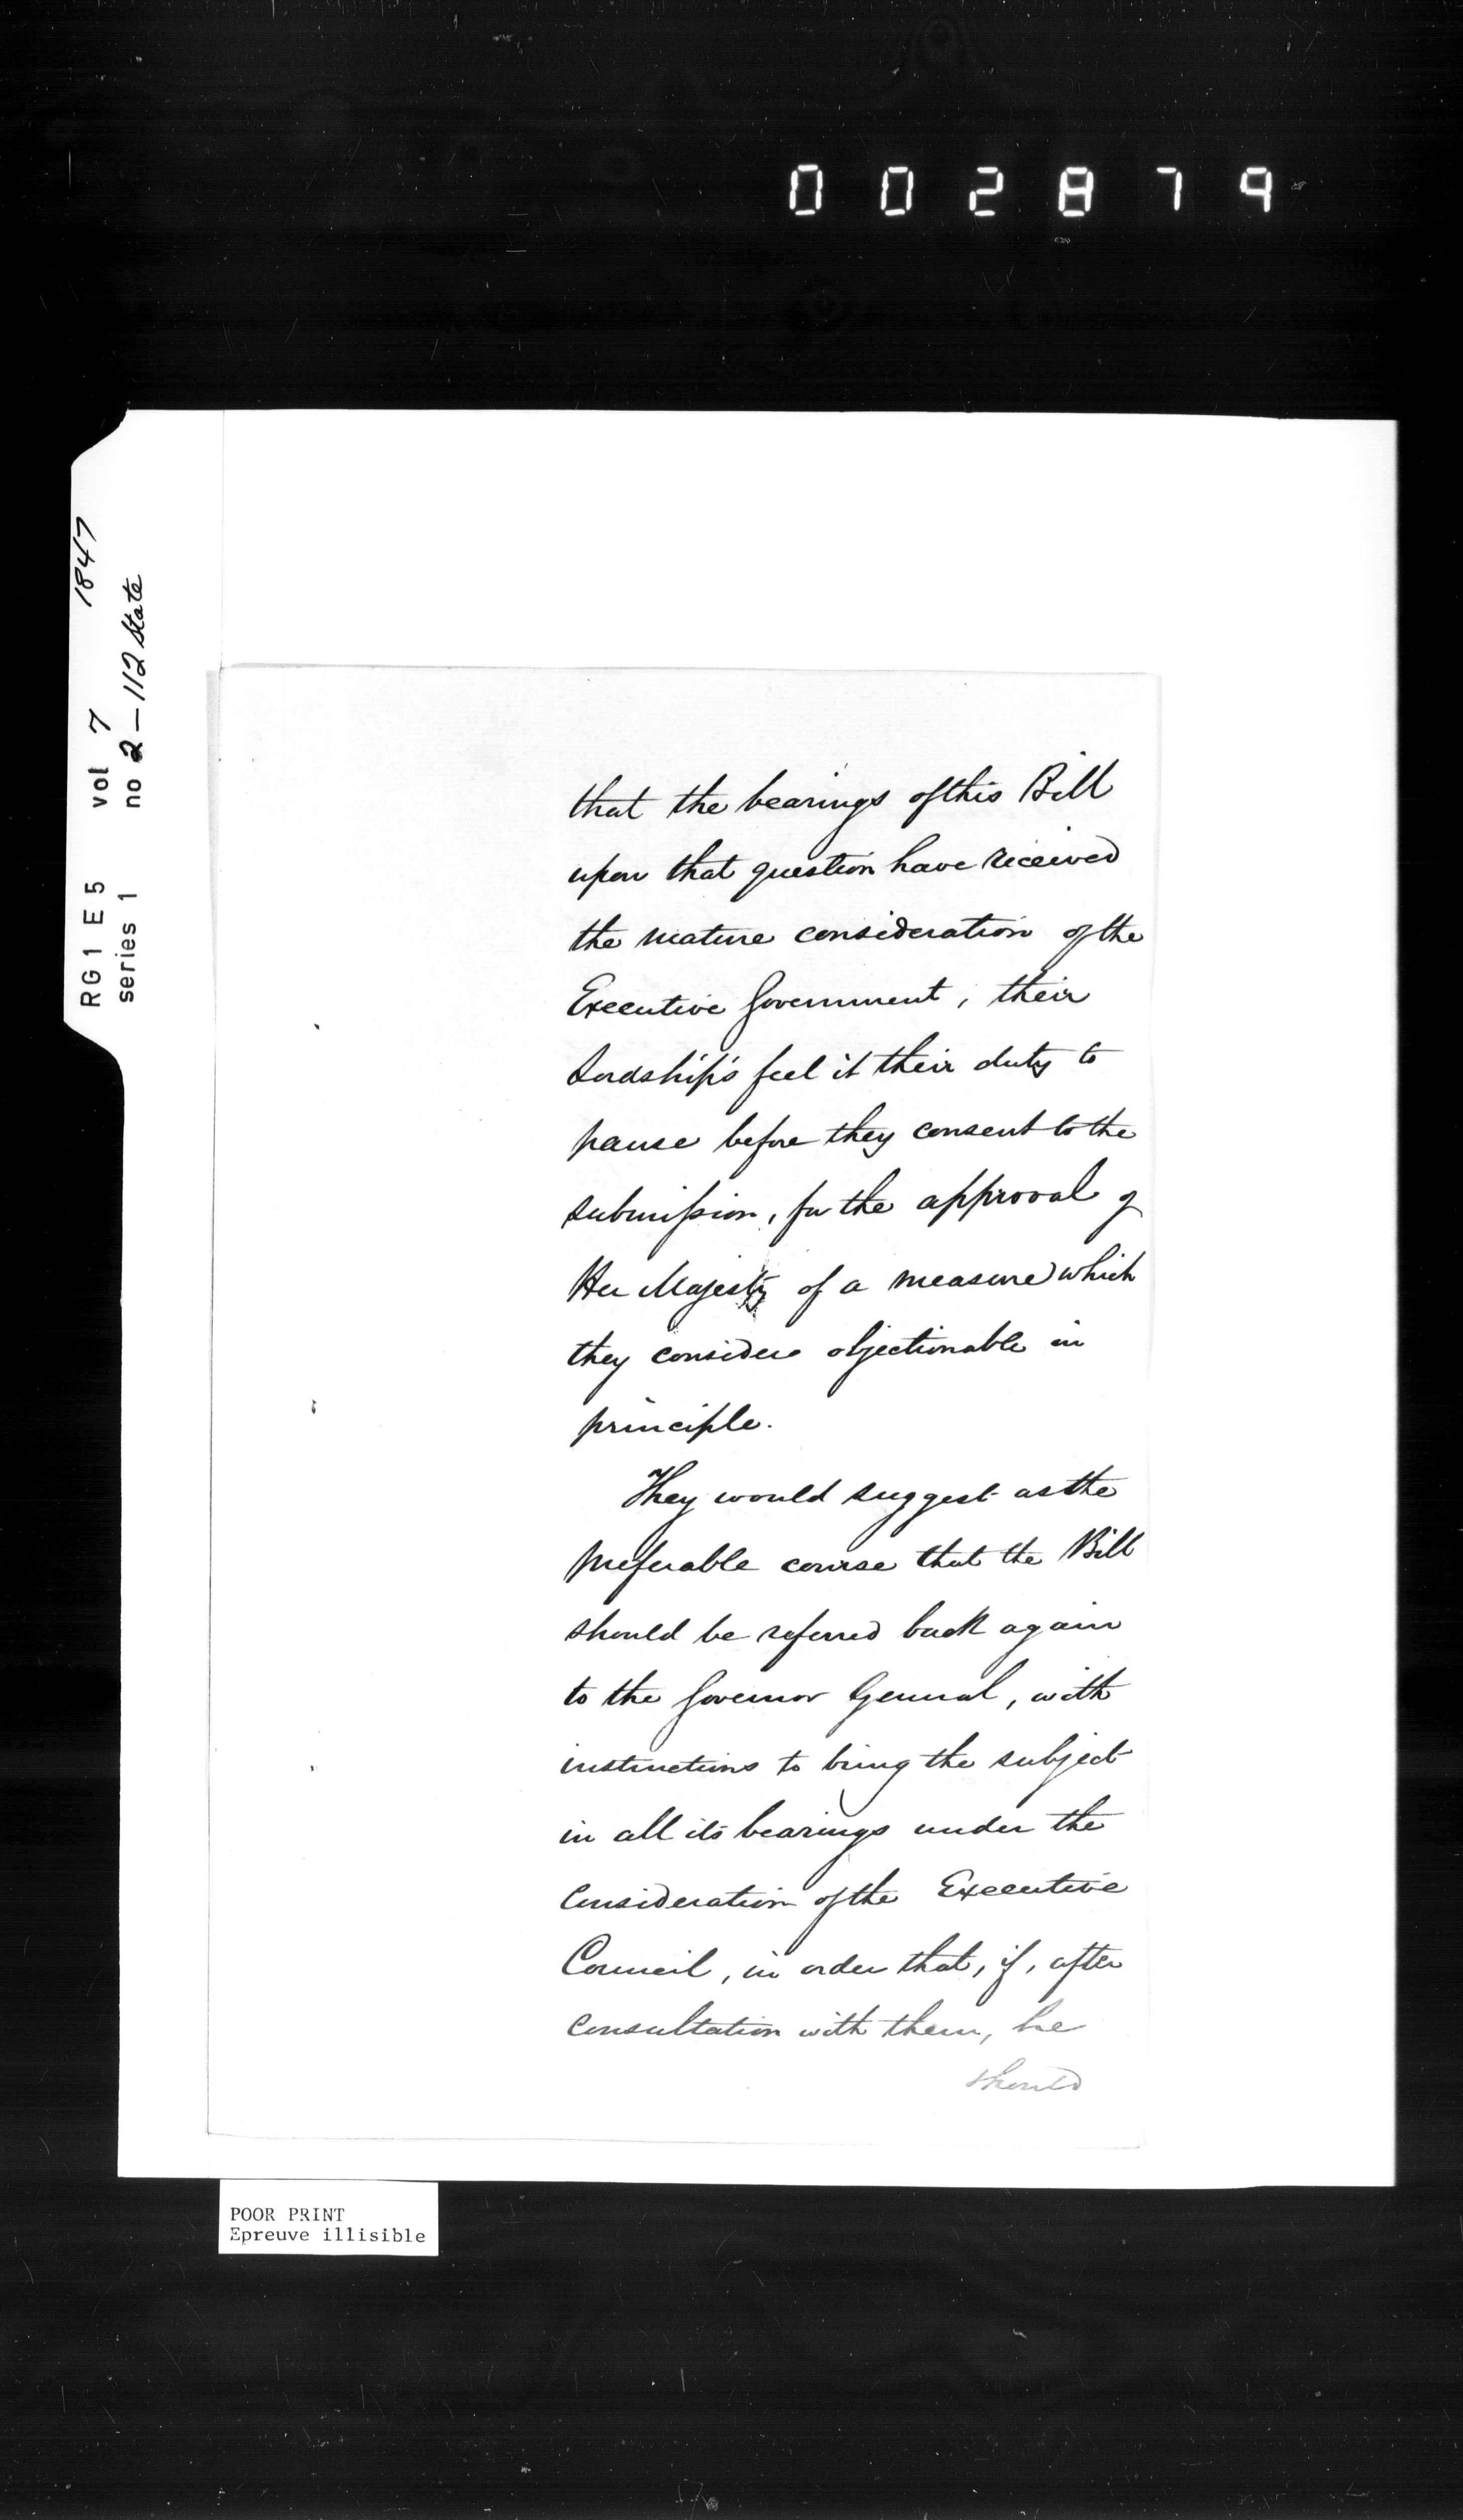 002879
RG1 E5 vol 7 1847
series 1 no 2 - 112 State
that the bearings of this Bill
upon that question have received
the mature consideration of the
Executive Government, their
Lordships feel it their duty to
pause before they consent to the
submission, for the approval of
Her Majesty of a measure which
they consider objectionable in
principle.
They would suggest as the
preferable course that the Bill
should be referred back again
to the Governor General, with
instructions to bring the subject
in all its bearings under the
consideration of the Executive
Council, in order that, if, after
consultation with them, he
should
POOR PRINT
Epreuve illisible